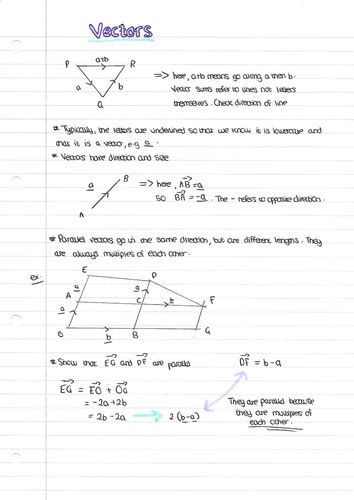 Vectors
P a+b R
a b
Q
=> here, a+b means go along a then b.
Vector sums refer to lines not letters
themselves. Check direction of line
* Typically, the letters are underlined so that we know it is lowercase and
that it is a vector, e.g a.
* Vectors have direction and size
a B
A
=> here, AB = a
so BA = -a. The - refers to opposite direction.
* Parallel vectors go in the same direction, but are different lengths. They
are always multiples of each other.
ex.
E D
a a
A C b F
a
O b B G
* Show that EG and DF are parallel
DF = b-a
EG = EO + OG
= -2a+2b
= 2b-2a → 2(b-a)
They are parallel because
they are multiples of
each other.